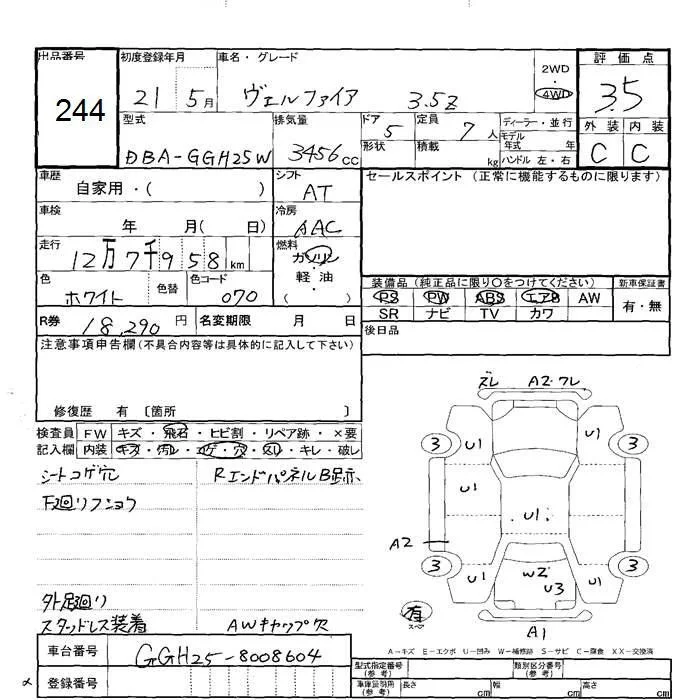 出品番号 初度登録年月 車名・グレード 2WD・4WD 評価点
244 21 5月 ヴェルファイア 3.5Z 3.5
型式 排気量 ドア 定員 ディーラー・並行 外装 内装
DBA-GGH25W 3456cc 5 7人 モデル年式 年 C C
形状 積載 kg ハンドル 左・右
車歴 シフト セールスポイント (正常に機能するものに限ります)
自家用・( ) AT
車検 冷房
年 月( 日) AAC
走行 燃料
12万7千958km ガソリン
色 色替 色コード 軽油
ホワイト 070 ( )
装備品 (純正品に限り○をつけてください) 新車保証書
PS PW ABS エアB AW 有・無
SR ナビ TV カワ
R券 18,290円 名変期限 月 日
後日品
注意事項申告欄(不具合内容等は具体的に記入して下さい)
修復歴 有 〔箇所 〕
検査員 FW キズ・飛石・ヒビ割・リペア跡・×要
記入欄 内装 キズ・汚レ・コゲ・穴・スレ・キレ・破レ
シートコゲ穴 RエンドパネルB跡、
下廻リフショウ
外足廻リ
スタッドレス装着 AWキャップ欠
ズレ A2・ワレ
3 U1 U1 3
U1
U1
A2
3 U1 W2 U3 U1 3
有 スペア
A1
A-キズ E-エクボ U-凹み W-補修跡 S-サビ C-腐食 XX-交換済
車台番号 GGH25-8008604
登録番号
型式指定番号(参考) 類別区分番号(参考)
車庫証明用(参考) 長さ cm 幅 cm 高さ cm